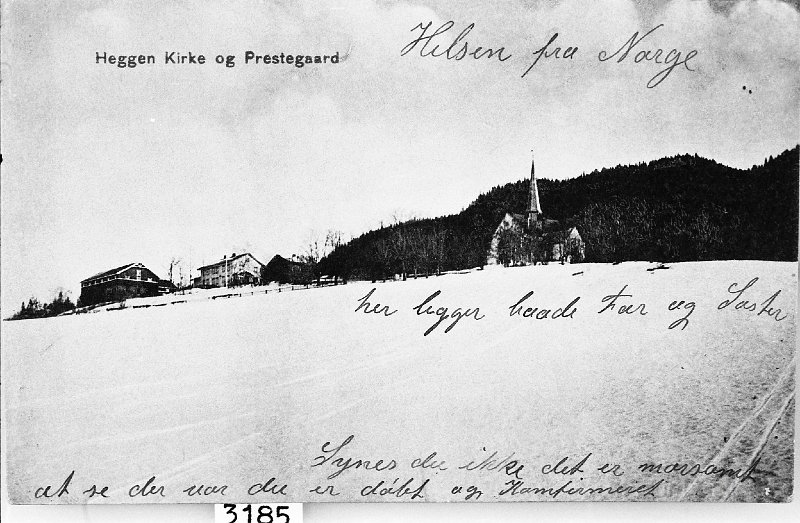 Heggen Kirke og Prestegaard
Helsen fra Norge
her legger baade Far og Søster
Synes du ikke det er morsomt
at se der var du er døbt og Komfirmeret
3185